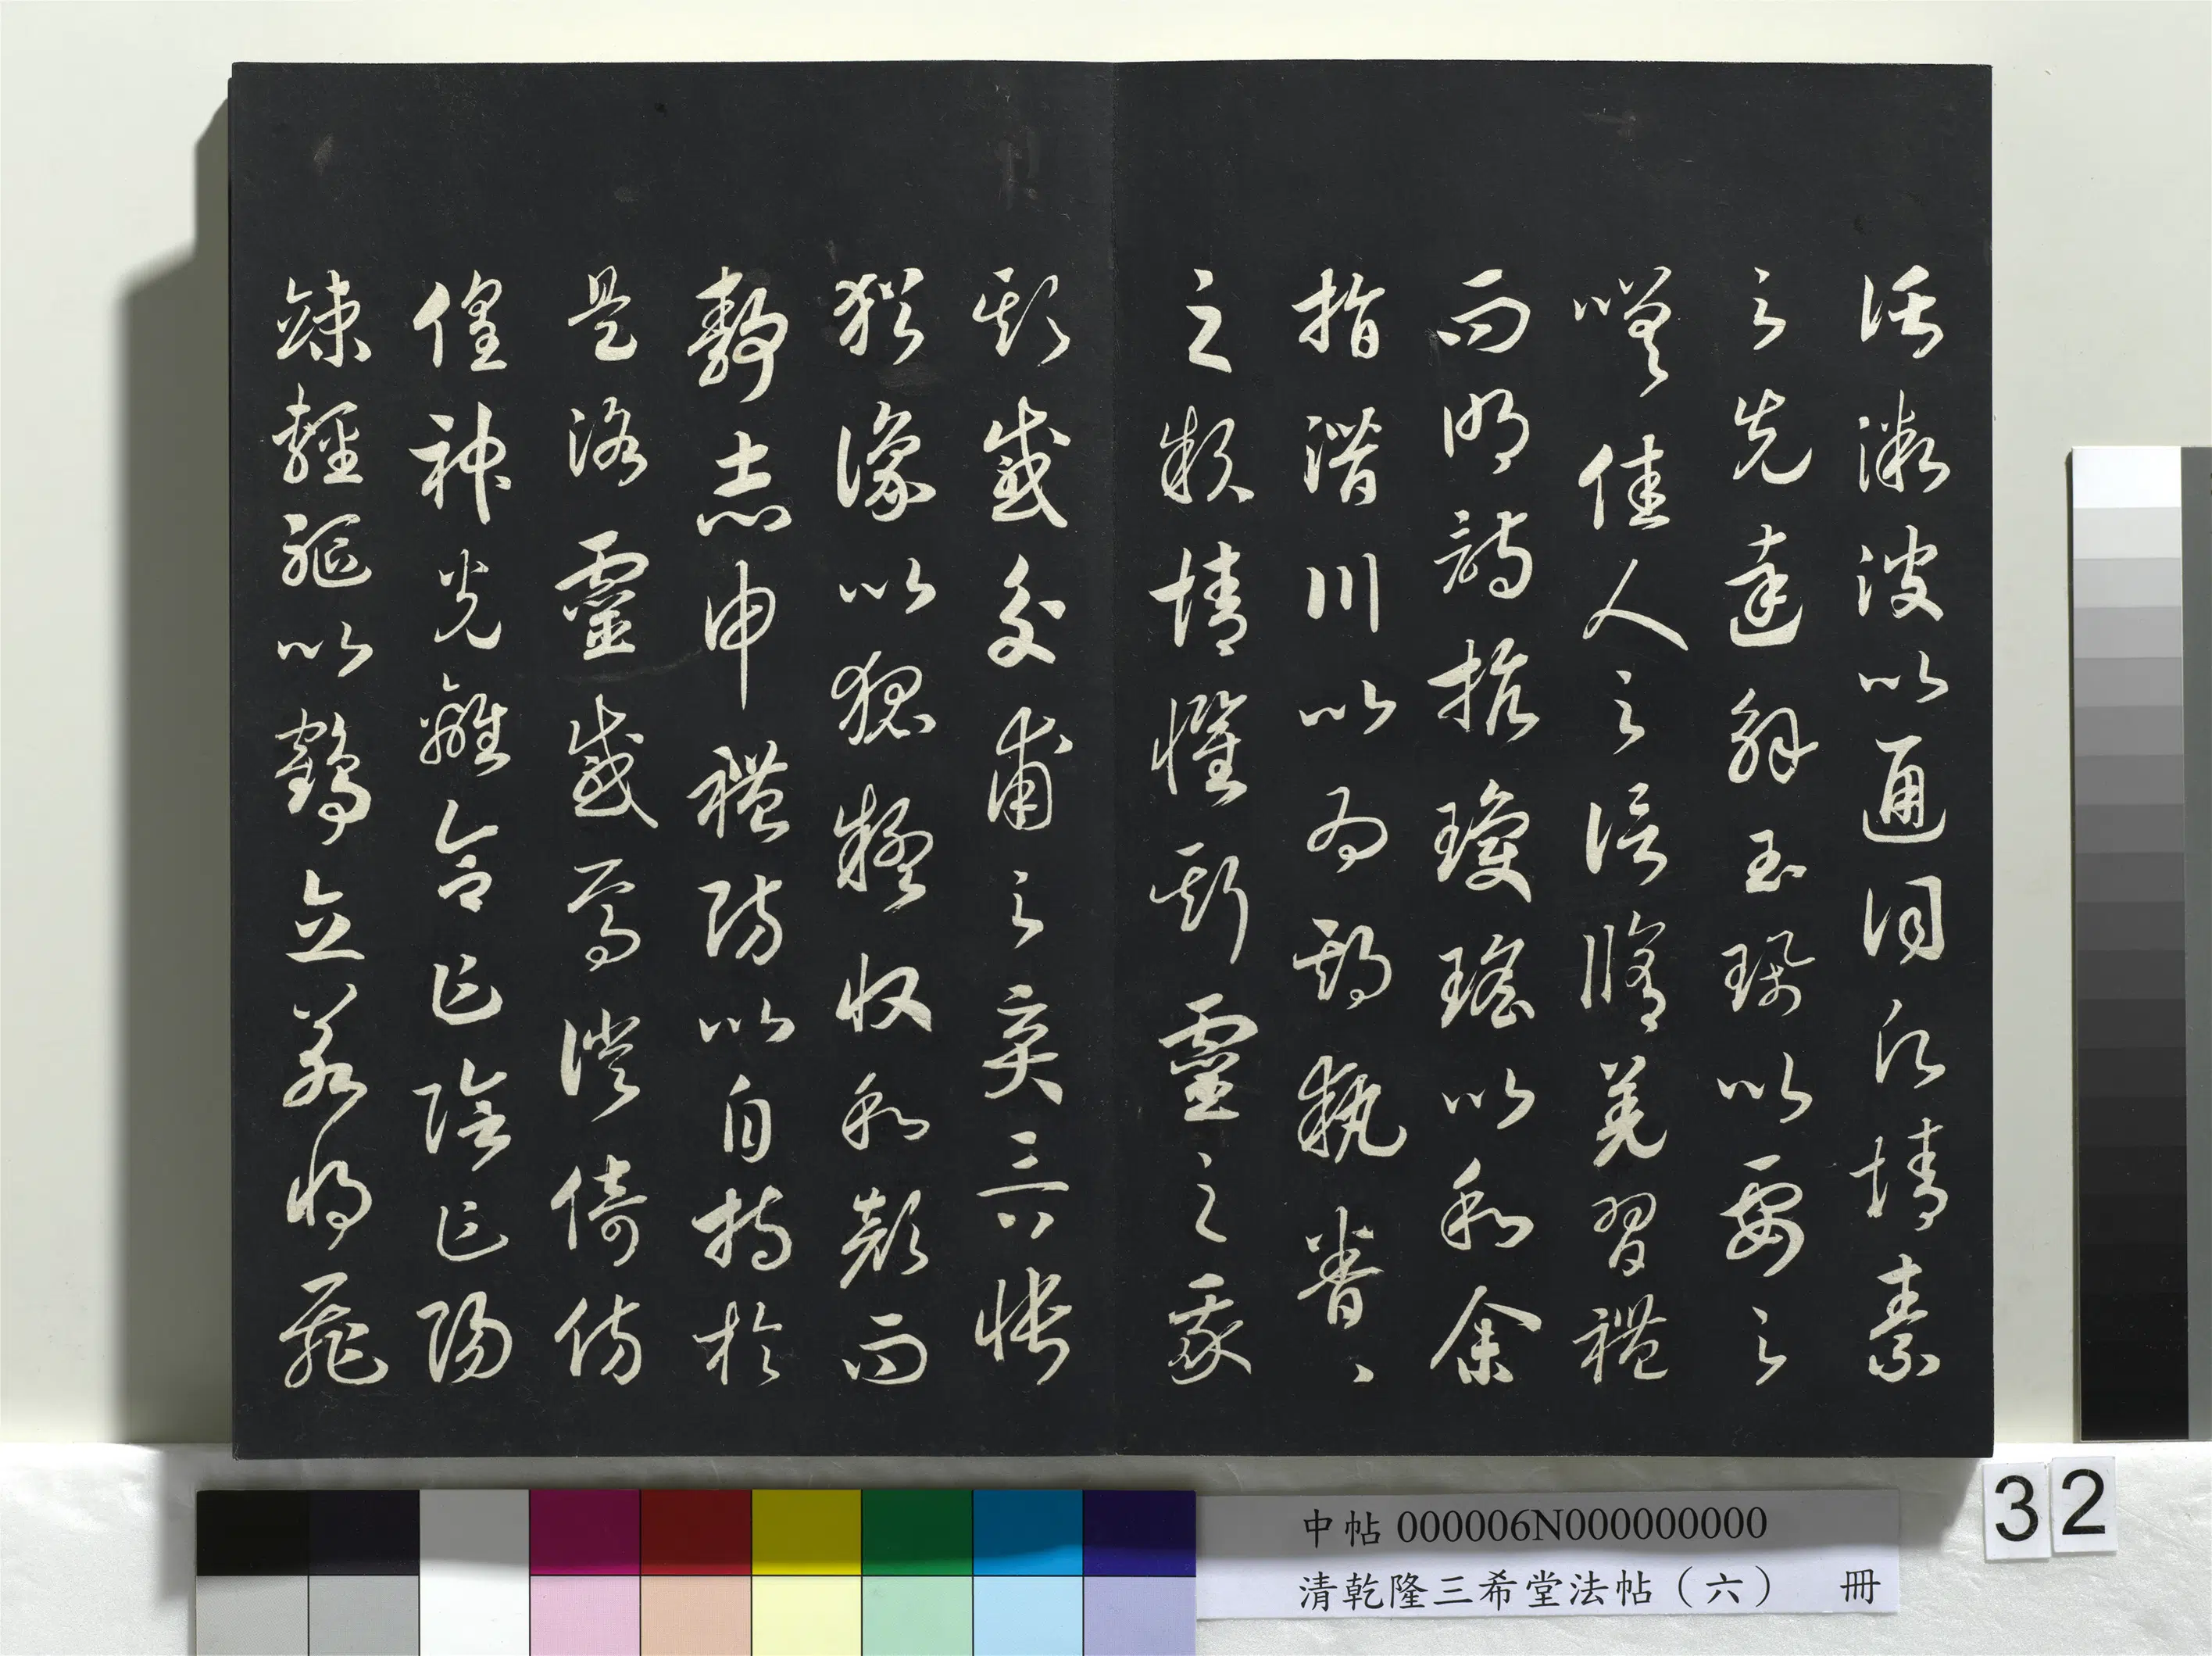 託微波以通詞願情素
之先達解玉珮以要之
嗟佳人之信脩羌習禮
而明詩抗瓊瑤以和余
指潛川以為期執眷〻
之款情懼斯靈之我
欺感交甫之棄言悵
猶豫以狐疑收和顏而
靜志申禮防以自持於
是洛靈感焉徙倚彷
徨神光離合乍陰乍陽
竦輕軀以鶴立若將飛
中帖 000006N000000000
清乾隆三希堂法帖（六） 冊
32